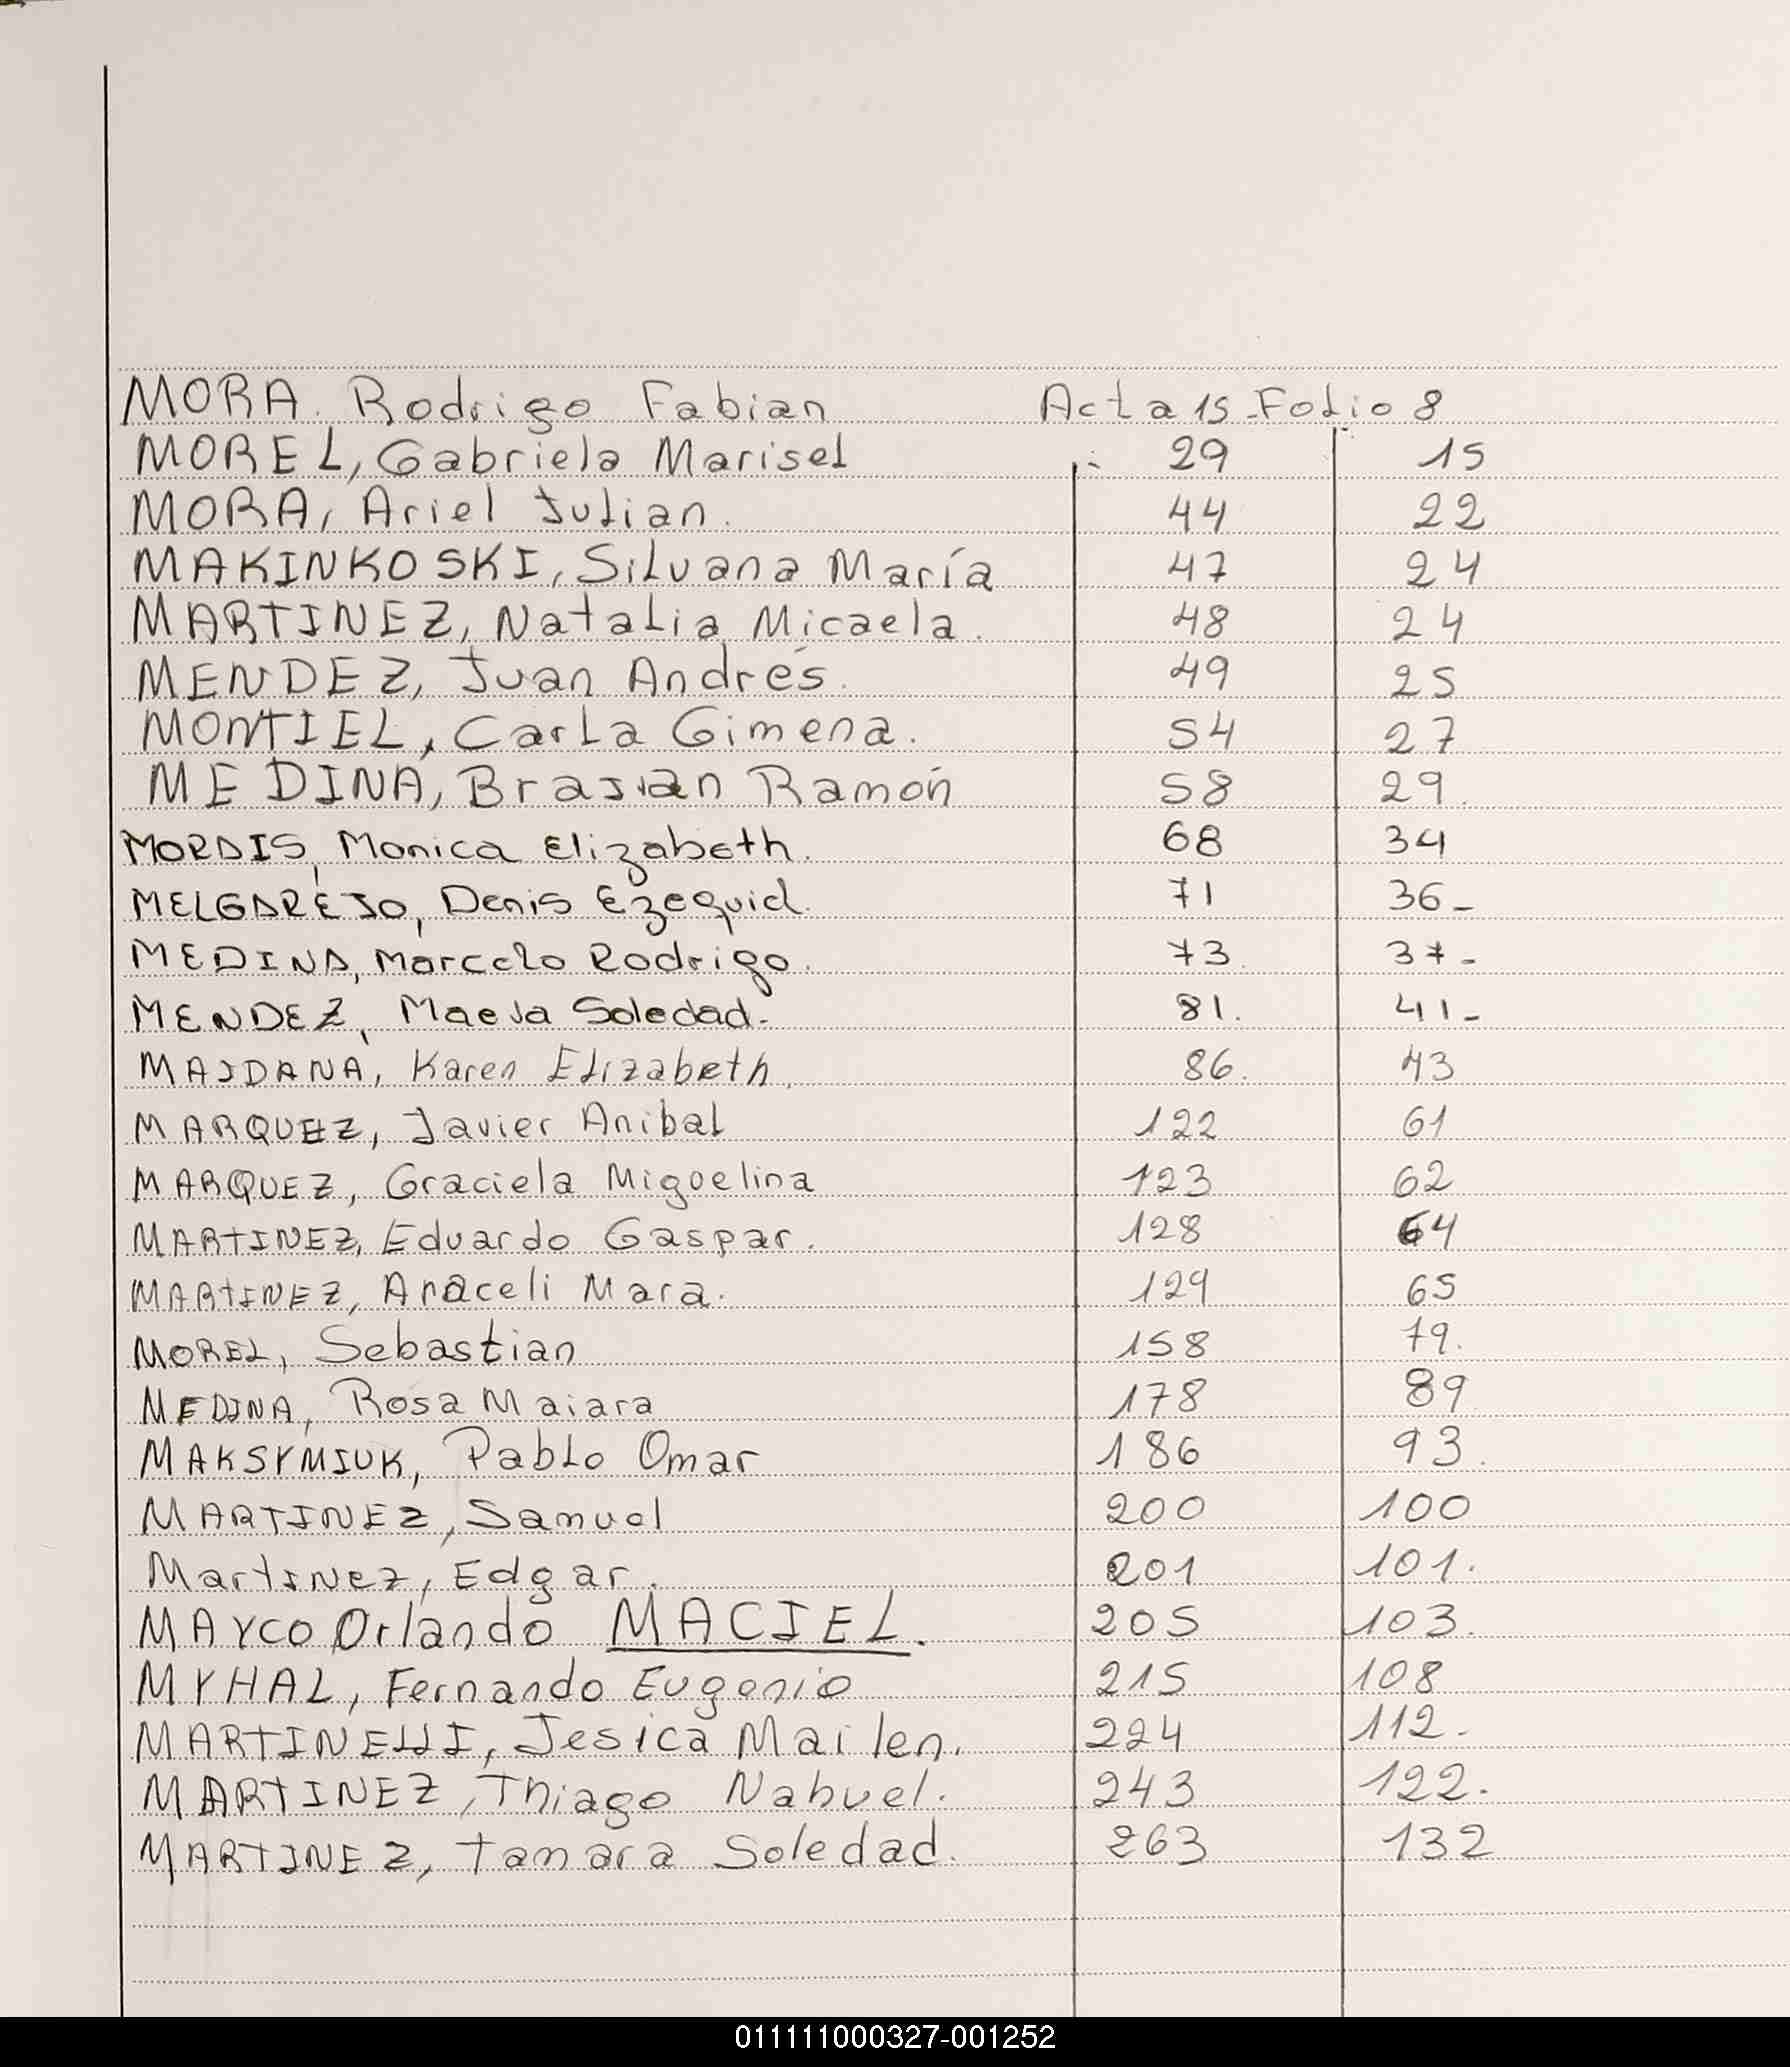 MORA. Rodrigo Fabian Acta 15 - Folio 8
MOREL, Gabriela Marisel 29 15
MORA, Ariel Julian. 44 22
MAKINKOSKI, Silvana María 47 24
MARTINEZ, Natalia Micaela. 48 24
MENDEZ, Juan Andrés. 49 25
MONTIEL, Carla Gimena. 54 27
MEDINA, Braian Ramón 58 29.
MORAIS, Monica Elizabeth. 68 34
MELGAREJO, Denis Ezequiel. 71 36-
MEDINA, Marcelo Rodrigo. 73. 37-
MENDEZ, Maeva Soledad. 81. 41-
MAIDANA, Karen Elizabeth. 86. 43
MARQUEZ, Javier Anibal 122 61
MARQUEZ, Graciela Miguelina 123 62
MARTINEZ, Eduardo Gaspar. 128 64
MARTINEZ, Araceli Mara. 129 65
MOREL, Sebastian 158 79.
MEDINA, Rosa Maiara 178 89
MAKSYMIUK, Pablo Omar 186 93.
MARTINEZ, Samuel 200 100
Martinez, Edgar. 201 101.
MAYCO Orlando MACIEL. 205 103.
MYHAL, Fernando Eugenio 215 108
MARTINELLI, Jesica Mailen. 224 112-
MARTINEZ, Thiago Nahuel. 243 122.
MARTINEZ, Tamara Soledad. 263 132
011111000327-001252